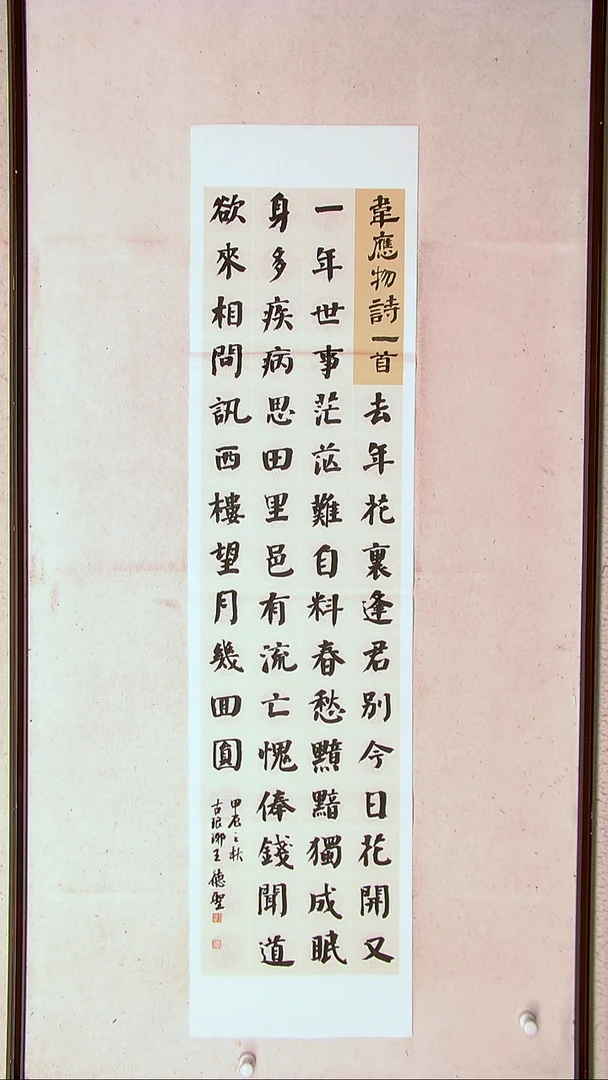 韋應物詩一首去年花裏逢君別今日花開又
一年世事茫茫難自料春愁黯黯獨成眠
身多疾病思田里邑有流亡愧俸錢聞道
欲來相問訊西樓望月幾回圓
甲辰之秋
古琅琊王德聖